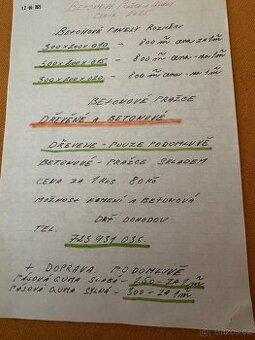 BETONOVÉ
BETONOVÉ PANELY ROZMĚRY
300x200x0
800 m² cena za 1 m²
300x200x015 - 800 m² cena - na 1 m²
300x200x020 - 800 m² cena - na 1 m²
BETONOVÉ PRAŽCE
DŘEVĚNÉ A BETONOVÉ
DŘEVĚNÉ - POUZE PO DOMLUVĚ
BETONOVÉ - PRAŽCE SKLADEM
CENA ZA 1 KUS 80 Kč
MOŽNOST KAMENÍ A BETONOVÁ
DRŤ DOHODOU
TEL.
723 931 035.
+ DOPRAVA PO DOMLUVĚ
PÁSOVÁ GUMA SLABÁ - 250 - ZA 1 m²
PÁSOVÁ GUMA SYLNÁ - 300 - ZA 1 m²